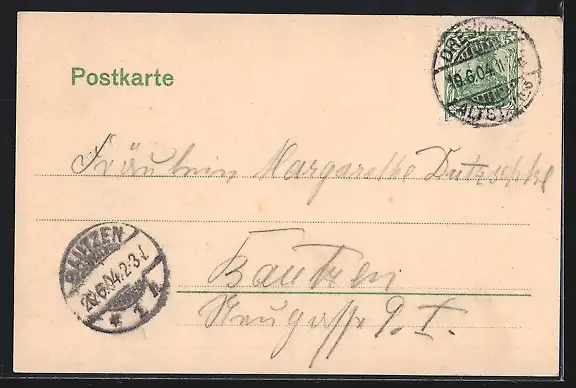 Postkarte
19.6.04.
ALTST.
Fräulein Margarethe
BAUTZEN
20.6.04. 2-3 N.
* 1 *
Bautzen
Neugasse 9. I.